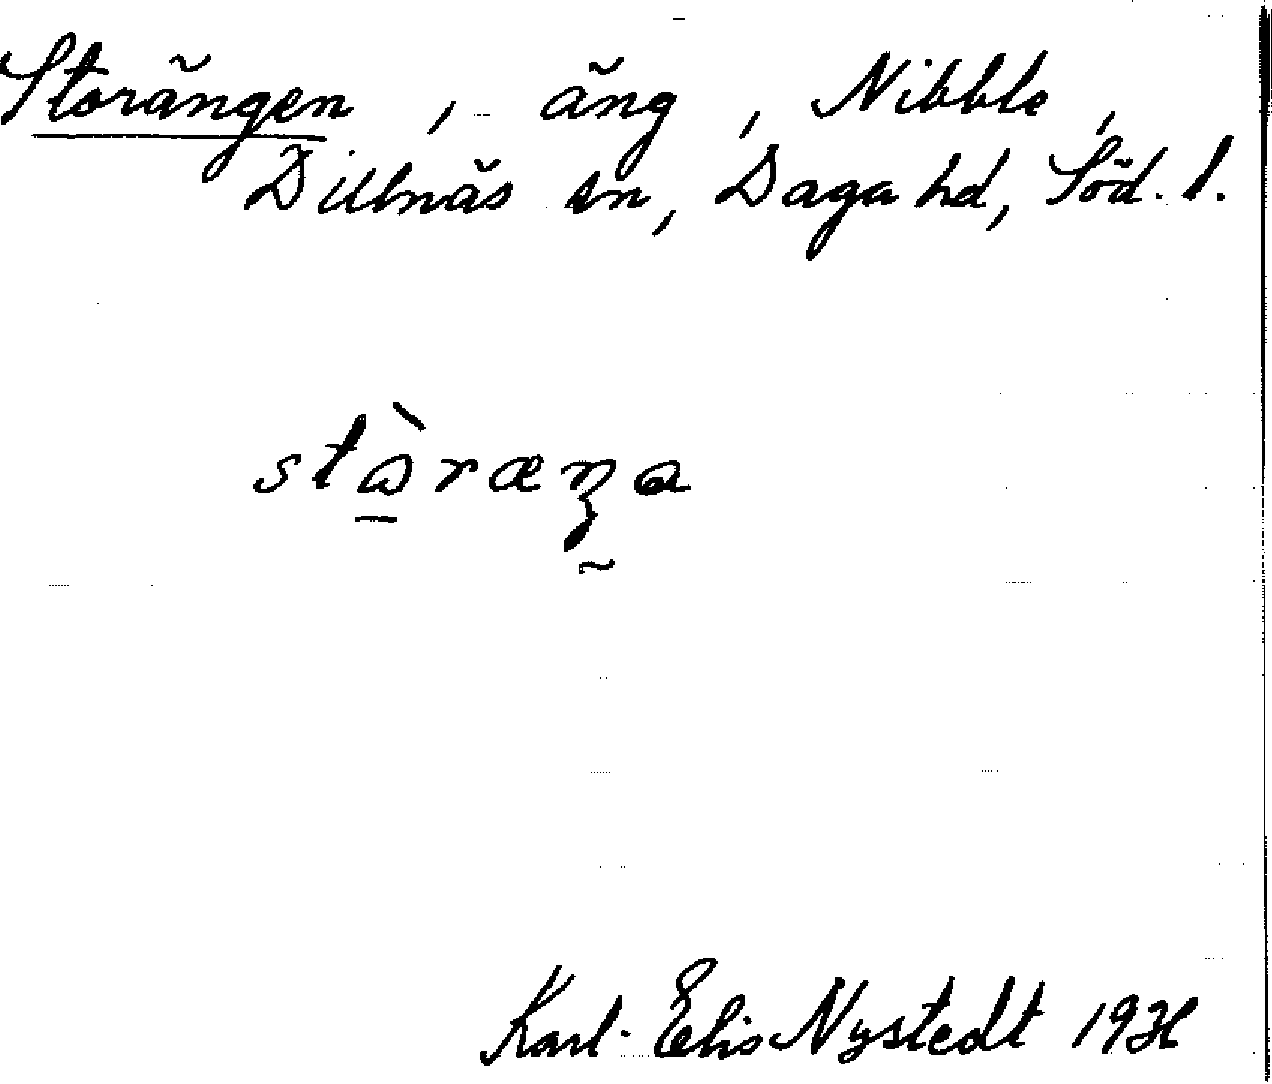 Storängen, äng, Nibble,
Dillnäs sn, Daga hd, Söd. l.
stòræŋa
Karl-Elis Nystedt